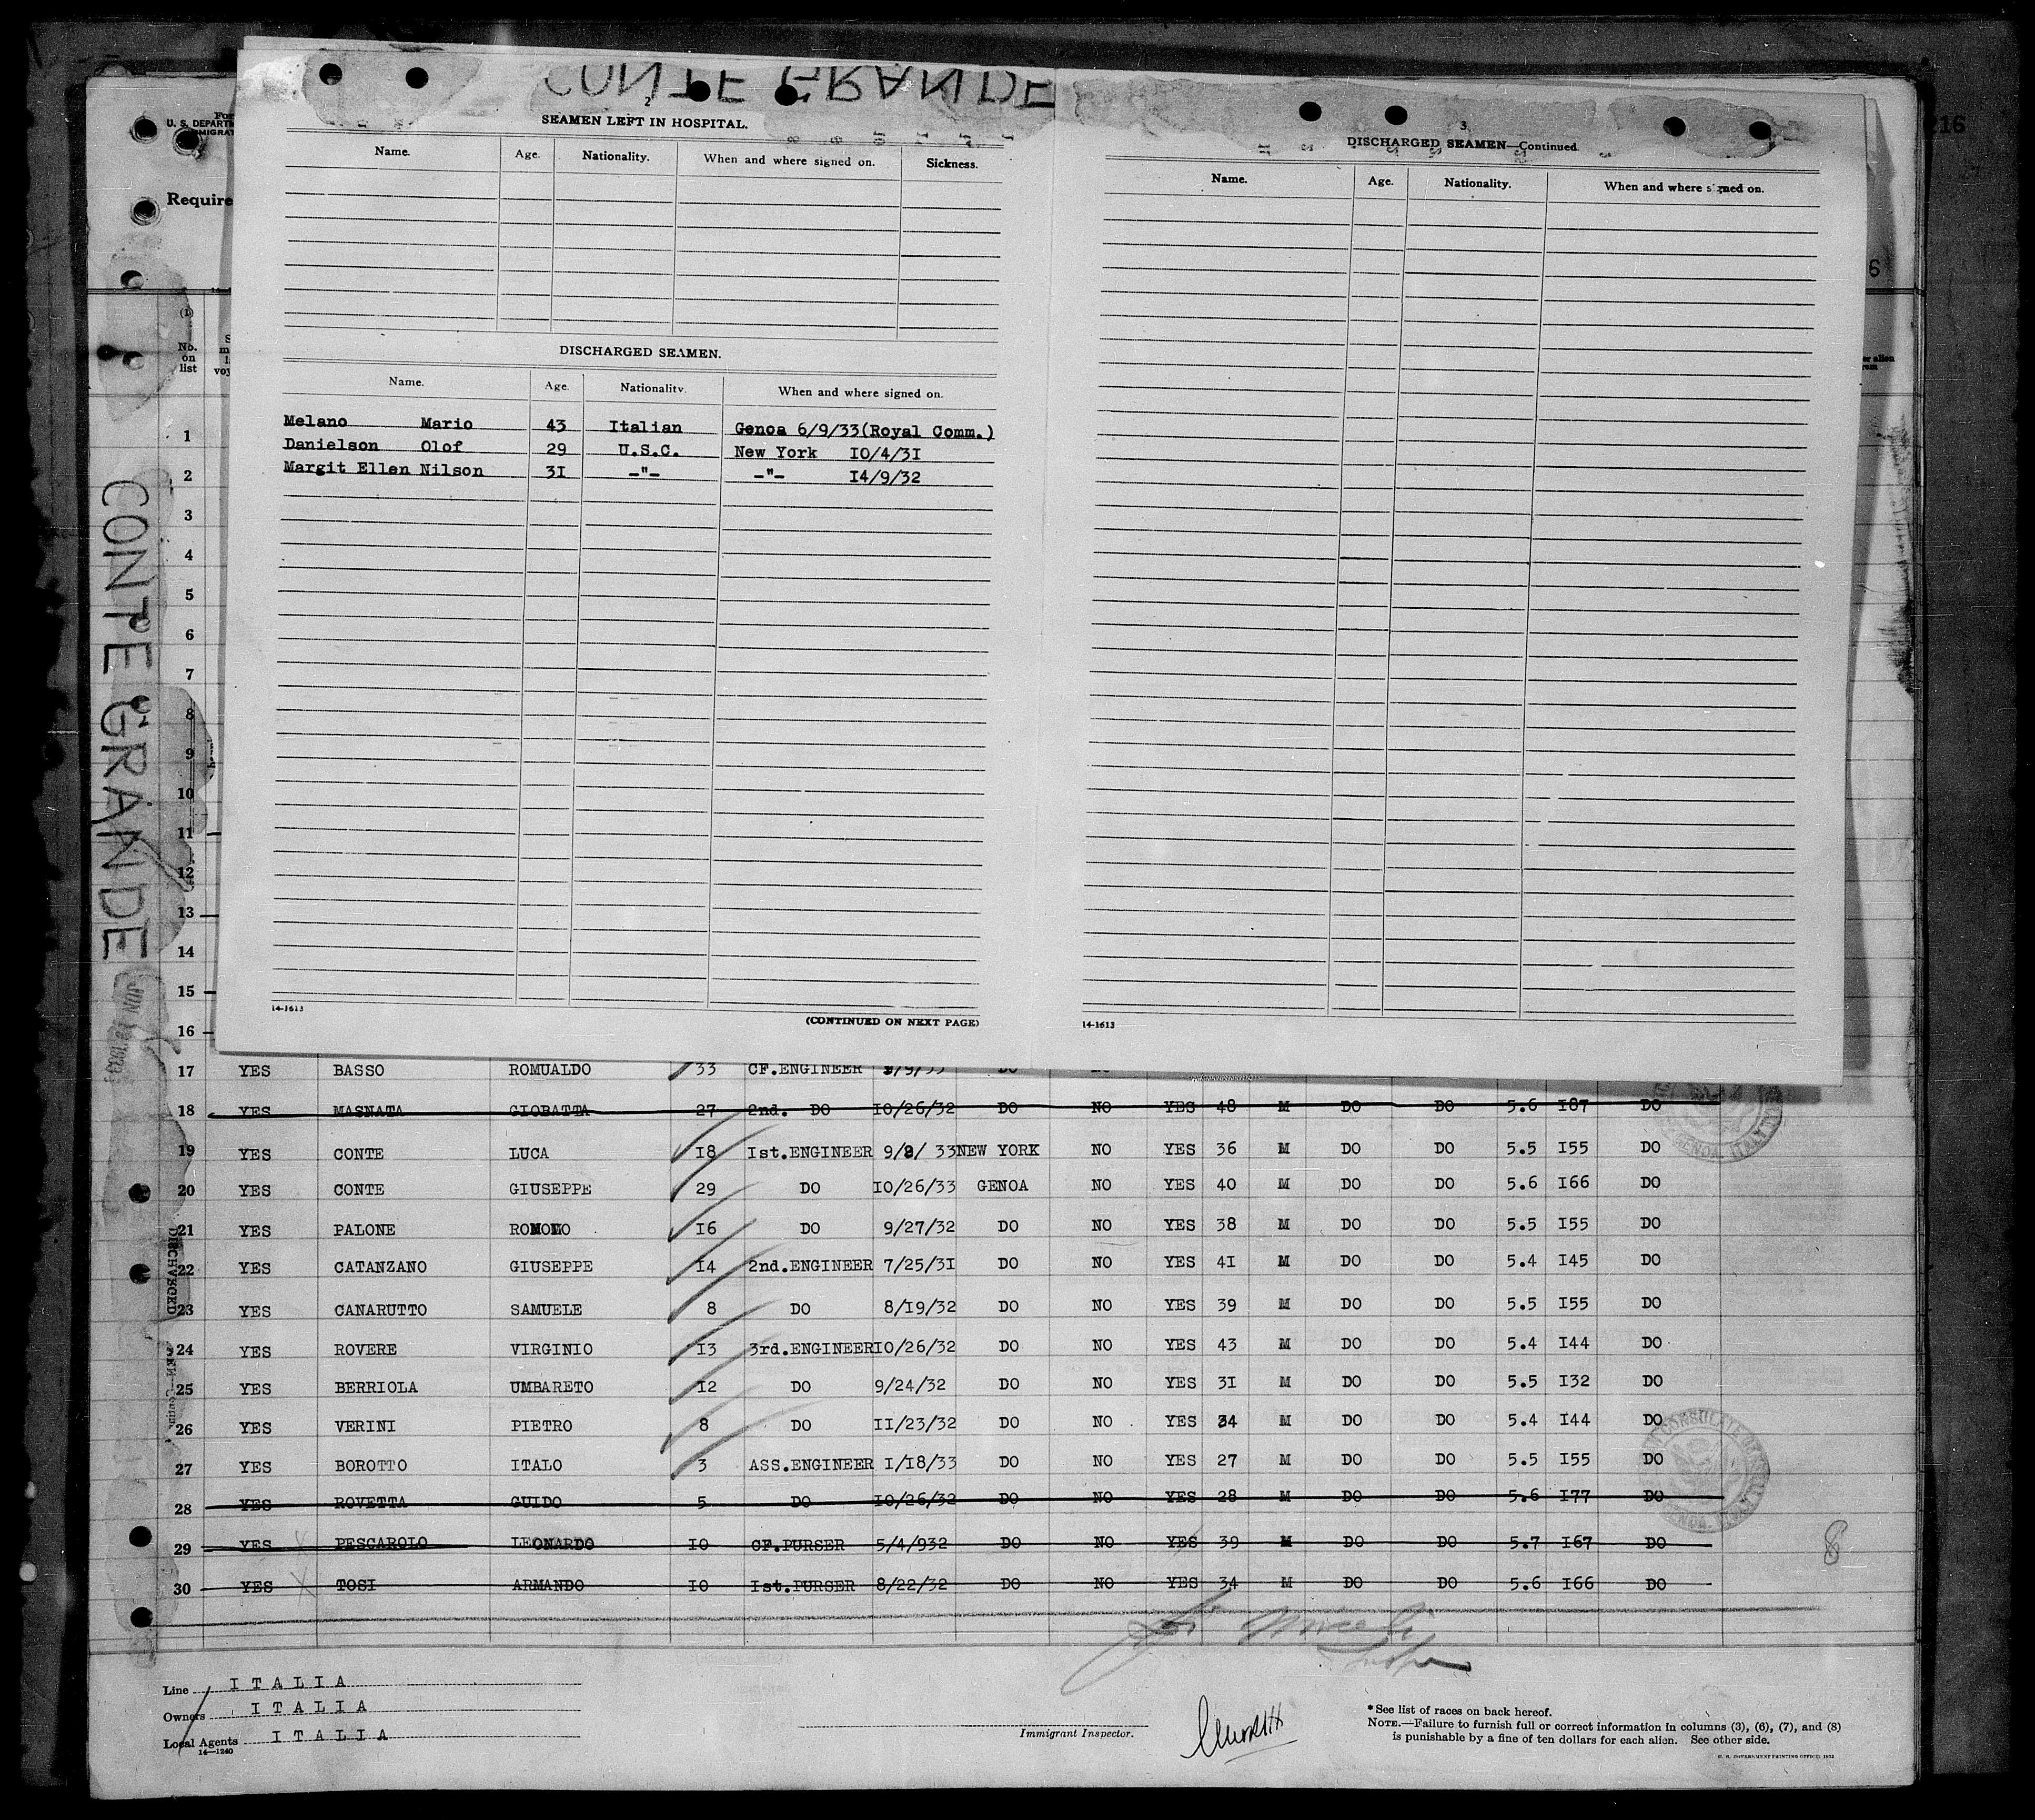 CONTE GRANDE
2
SEAMEN LEFT IN HOSPITAL.
Name. Age. Nationality. When and where signed on. Sickness.
DISCHARGED SEAMEN.
Name. Age. Nationality. When and where signed on.
Melano Mario 43 Italian Genoa 6/9/33(Royal Comm.)
Danielson Olof 29 U.S.C. New York 10/4/31
Margit Ellen Nilson 31 -"- -"- 14/9/32
14-1613
(CONTINUED ON NEXT PAGE)
3
DISCHARGED SEAMEN—Continued
Name. Age. Nationality. When and where signed on.
14-1613
216
6
For
U. S. DEPARTM
IMMIGRAT
Require
(1)
No. on list
er alien
rom
1
2
3
4
5
6
7
8
9
10
11
12
13
14
15
16
CONTE GRANDE
DISCHARGED
17 YES BASSO ROMUALDO 33 CF.ENGINEER 9/9/33 DO NO
18 YES MASNATA GIOBATTA 27 2nd. DO 10/26/32 DO NO YES 48 M DO DO 5.6 187 DO
19 YES CONTE LUCA 18 Ist.ENGINEER 9/9/ 33 NEW YORK NO YES 36 M DO DO 5.5 I55 DO
20 YES CONTE GIUSEPPE 29 DO 10/26/33 GENOA NO YES 40 M DO DO 5.6 I66 DO
21 YES PALONE ROMOLO 16 DO 9/27/32 DO NO YES 38 M DO DO 5.5 I55 DO
22 YES CATANZANO GIUSEPPE 14 2nd.ENGINEER 7/25/31 DO NO YES 41 M DO DO 5.4 I45 DO
23 YES CANARUTTO SAMUELE 8 DO 8/19/32 DO NO YES 39 M DO DO 5.5 I55 DO
24 YES ROVERE VIRGINIO 13 3rd.ENGINEER 10/26/32 DO NO YES 43 M DO DO 5.4 I44 DO
25 YES BERRIOLA UMBARETO 12 DO 9/24/32 DO NO YES 31 M DO DO 5.5 I32 DO
26 YES VERINI PIETRO 8 DO 11/23/32 DO NO YES 34 M DO DO 5.4 I44 DO
27 YES BOROTTO ITALO 3 ASS.ENGINEER 1/18/33 DO NO YES 27 M DO DO 5.5 I55 DO
28 YES ROVETTA GUIDO 5 DO 10/26/32 DO NO YES 28 M DO DO 5.6 I77 DO
29 YES PESCAROLO LEONARDO 10 CF.PURSER 5/4/932 DO NO YES 39 M DO DO 5.7 I67 DO
30 YES TOSI ARMANDO 10 Ist.PURSER 8/22/32 DO NO YES 34 M DO DO 5.6 I66 DO
8
Line ITALIA
Owners ITALIA
Local Agents ITALIA
14—1240
Immigrant Inspector.
* See list of races on back hereof.
NOTE.—Failure to furnish full or correct information in columns (3), (6), (7), and (8)
is punishable by a fine of ten dollars for each alien. See other side.
U. S. GOVERNMENT PRINTING OFFICE: 1932